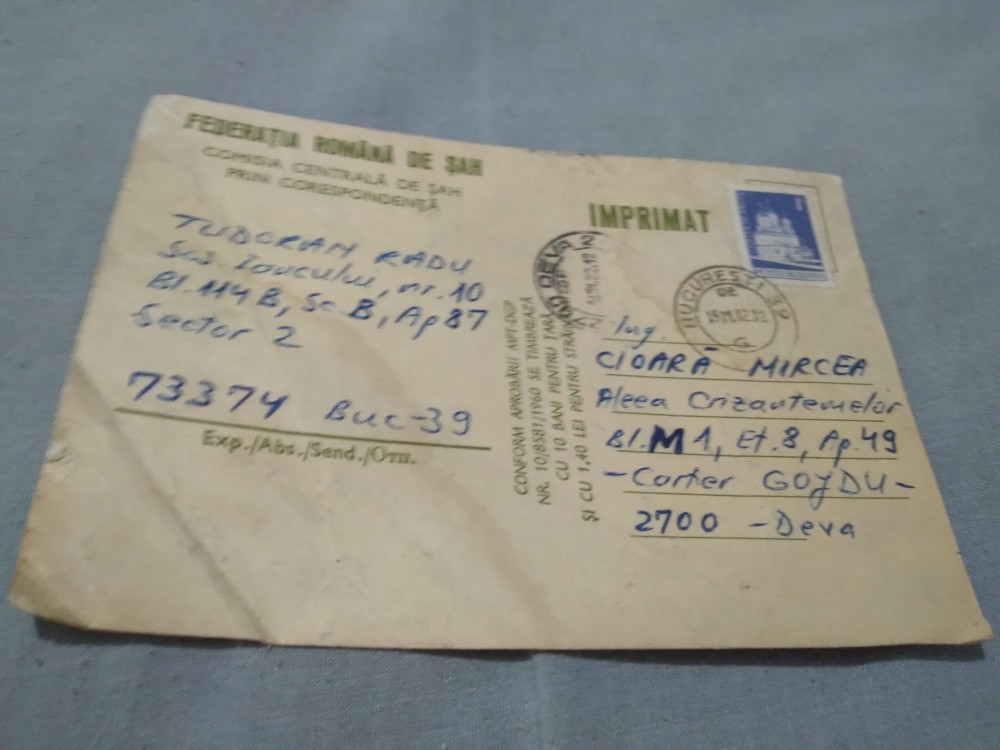 FEDERAȚIA ROMÂNĂ DE ȘAH
COMISIA CENTRALĂ DE ȘAH
PRIN CORESPONDENȚĂ
TUDORAN RADU
Șos. Iancului, nr. 10
Bl. 114 B, Sc. B, Ap 87
Sector 2
73374 Buc-39
Exp./Abs./Send./Отп.
CONFORM APROBĂRII MPT-DGP
NR. 10/8581/1960 SE TIMBREAZĂ
CU 10 BANI PENTRU ȚARĂ
ȘI CU 1,40 LEI PENTRU STRĂIN
IMPRIMAT
DEVA
BUCUREȘTI 39
Ing.
CIOARĂ MIRCEA
Aleea Crizantemelor
Bl. M1, Et. 8, Ap. 49
- Cartier GOJDU -
2700 - Deva